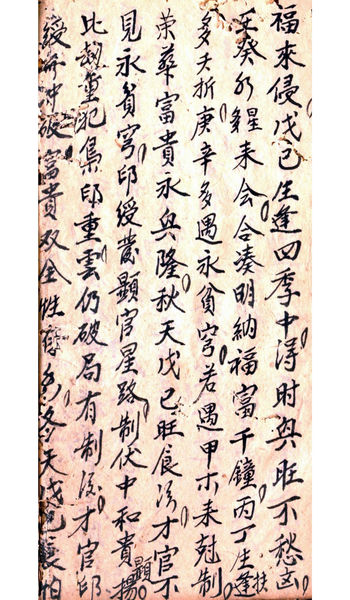 福來侵戊己生逢四季中得时兴旺不愁凶
壬癸水星来会合凑明納福富千鐘丙丁生逢扶
多夭折庚辛多遇永貧穷若遇甲木来尅制
荣華富貴永兴隆秋天戊己旺食淂才官不
見永貧穷印绶叢顯官星路制伏中和貴顯揚
比刼重犯梟印重雲仍破局有制淂才官印
绶冲破富貴双全性冬天戊己衰怕